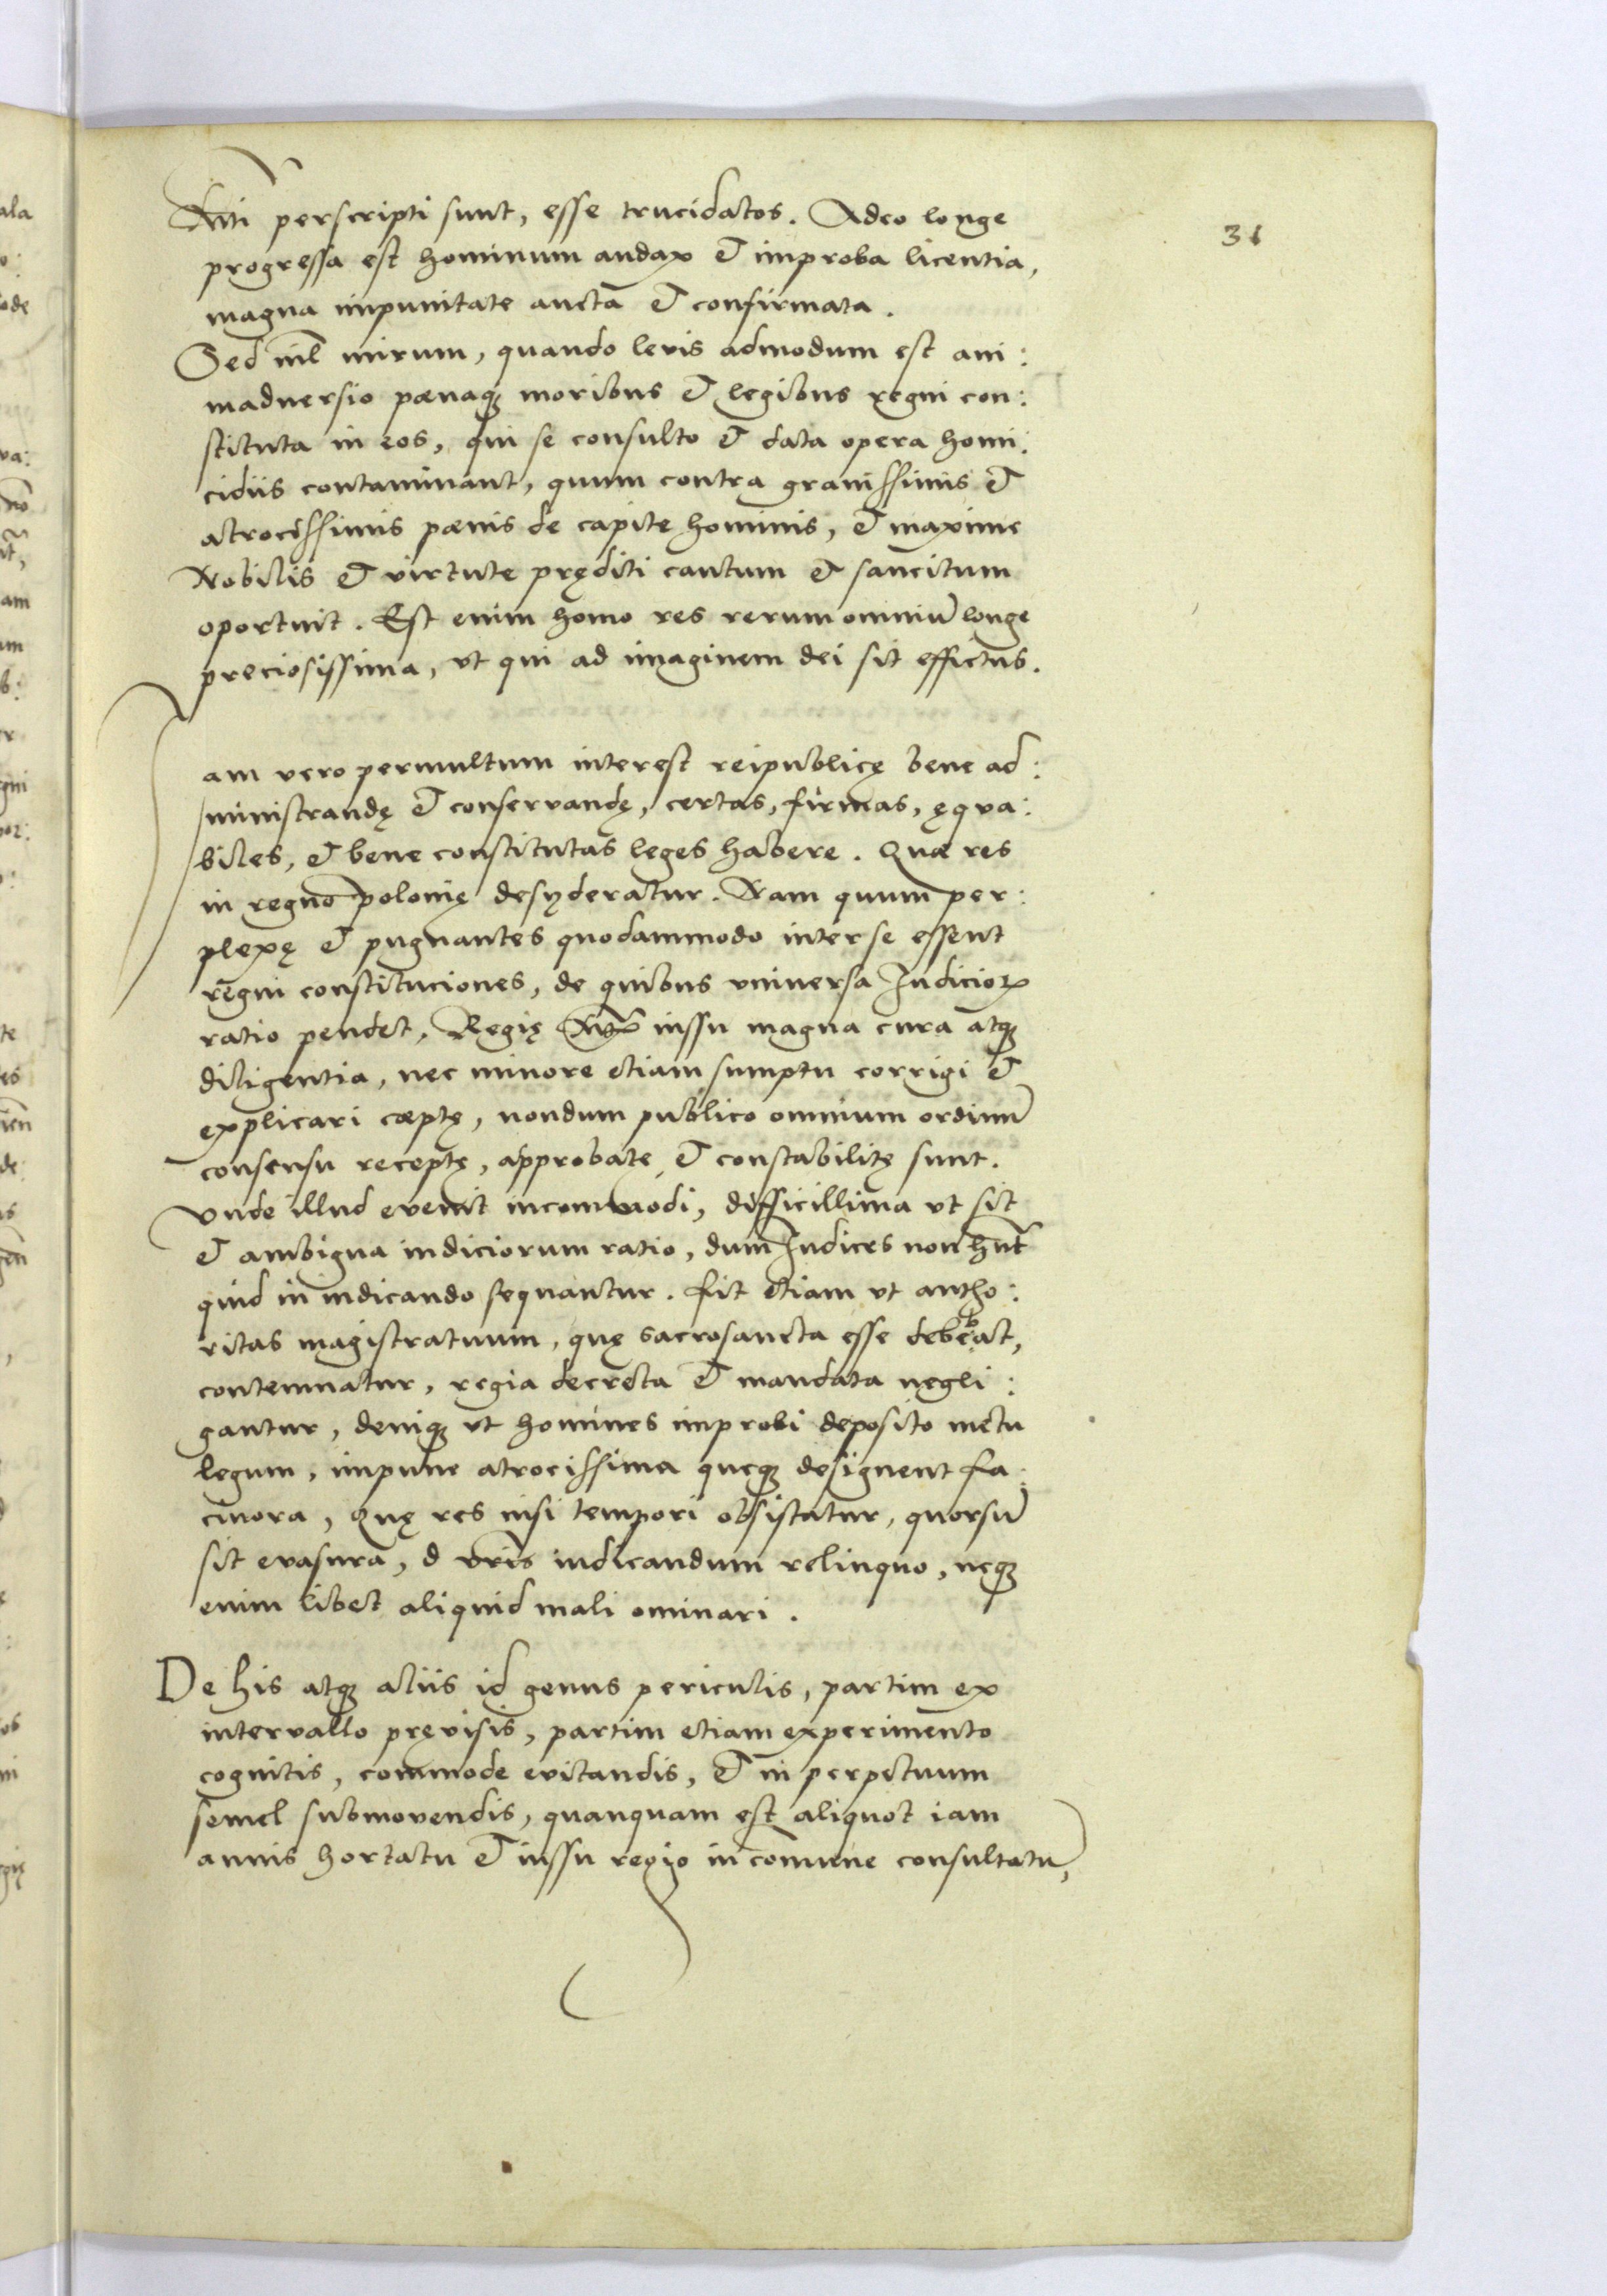 31
perscripti sunt, esse trucidatos. Adeo longe
progressa est hominum audax et improba licentia,
magna impunitate aucta et confirmata.
Sed nil mirum, quando levis admodum est ani:
maduersio pœnaq₃ moribus et legibus regni con:
stituta in eos, qui se consulto et data opera homi:
cidiis contaminant, quum contra grauissimis et
atrocissimis pœnis de capite hominis, et maxime
Nobilis et virtute pręditi cautum et sancitum
oportuit. Est enim homo res rerum omniū longe
preciosissima, vt qui ad imaginem dei sit effictus.
Iam vero permultum interest reipublicę bene ad:
ministrandę et conservandę, certas, firmas, ęqua:
biles, et bene constitutas leges habere. Quæ res
in regno polonię desyderatur. Nam quum per:
plexę et pugnantes quodammodo inter se essent
regni constituciones, de quibus vniuersa Iudicioꝝ
ratio pendet, Regię iussu magna cura atq₃
diligentia, nec minore etiam sumptu corrigi et
explicari cœptę, nondum publico omnium ordinū
consensu receptę, approbate et constabilitę sunt.
Vnde illud evenit incommodi, difficillima vt sit
et ambigua iudiciorum ratio, dum Iudices non hn̄t
quid in iudicando sequantur. Fit etiam vt autho:
ritas magistratuum, quę sacrosancta esse debebat,
contemnatur, regia decreta et mandata negli:
gantur, deniq₃ vt homines improbi deposito metu
legum, impune atrocissima queq₃ designent fa:
cinora, Quę res nisi tempori obsistatur, quorsū
sit evasura, d vr̄is iudicandum relinquo, neq₃
enim libet aliquid mali ominari.
De his atq₃ aliis id genus periculis, partim ex
intervallo pręvisis, partim etiam experimento
cognitis, commode evitandis, et in perpetuum
semel submovendis, quanquam est aliquot iam
annis hortatu et iussu regio in comune consultatū,